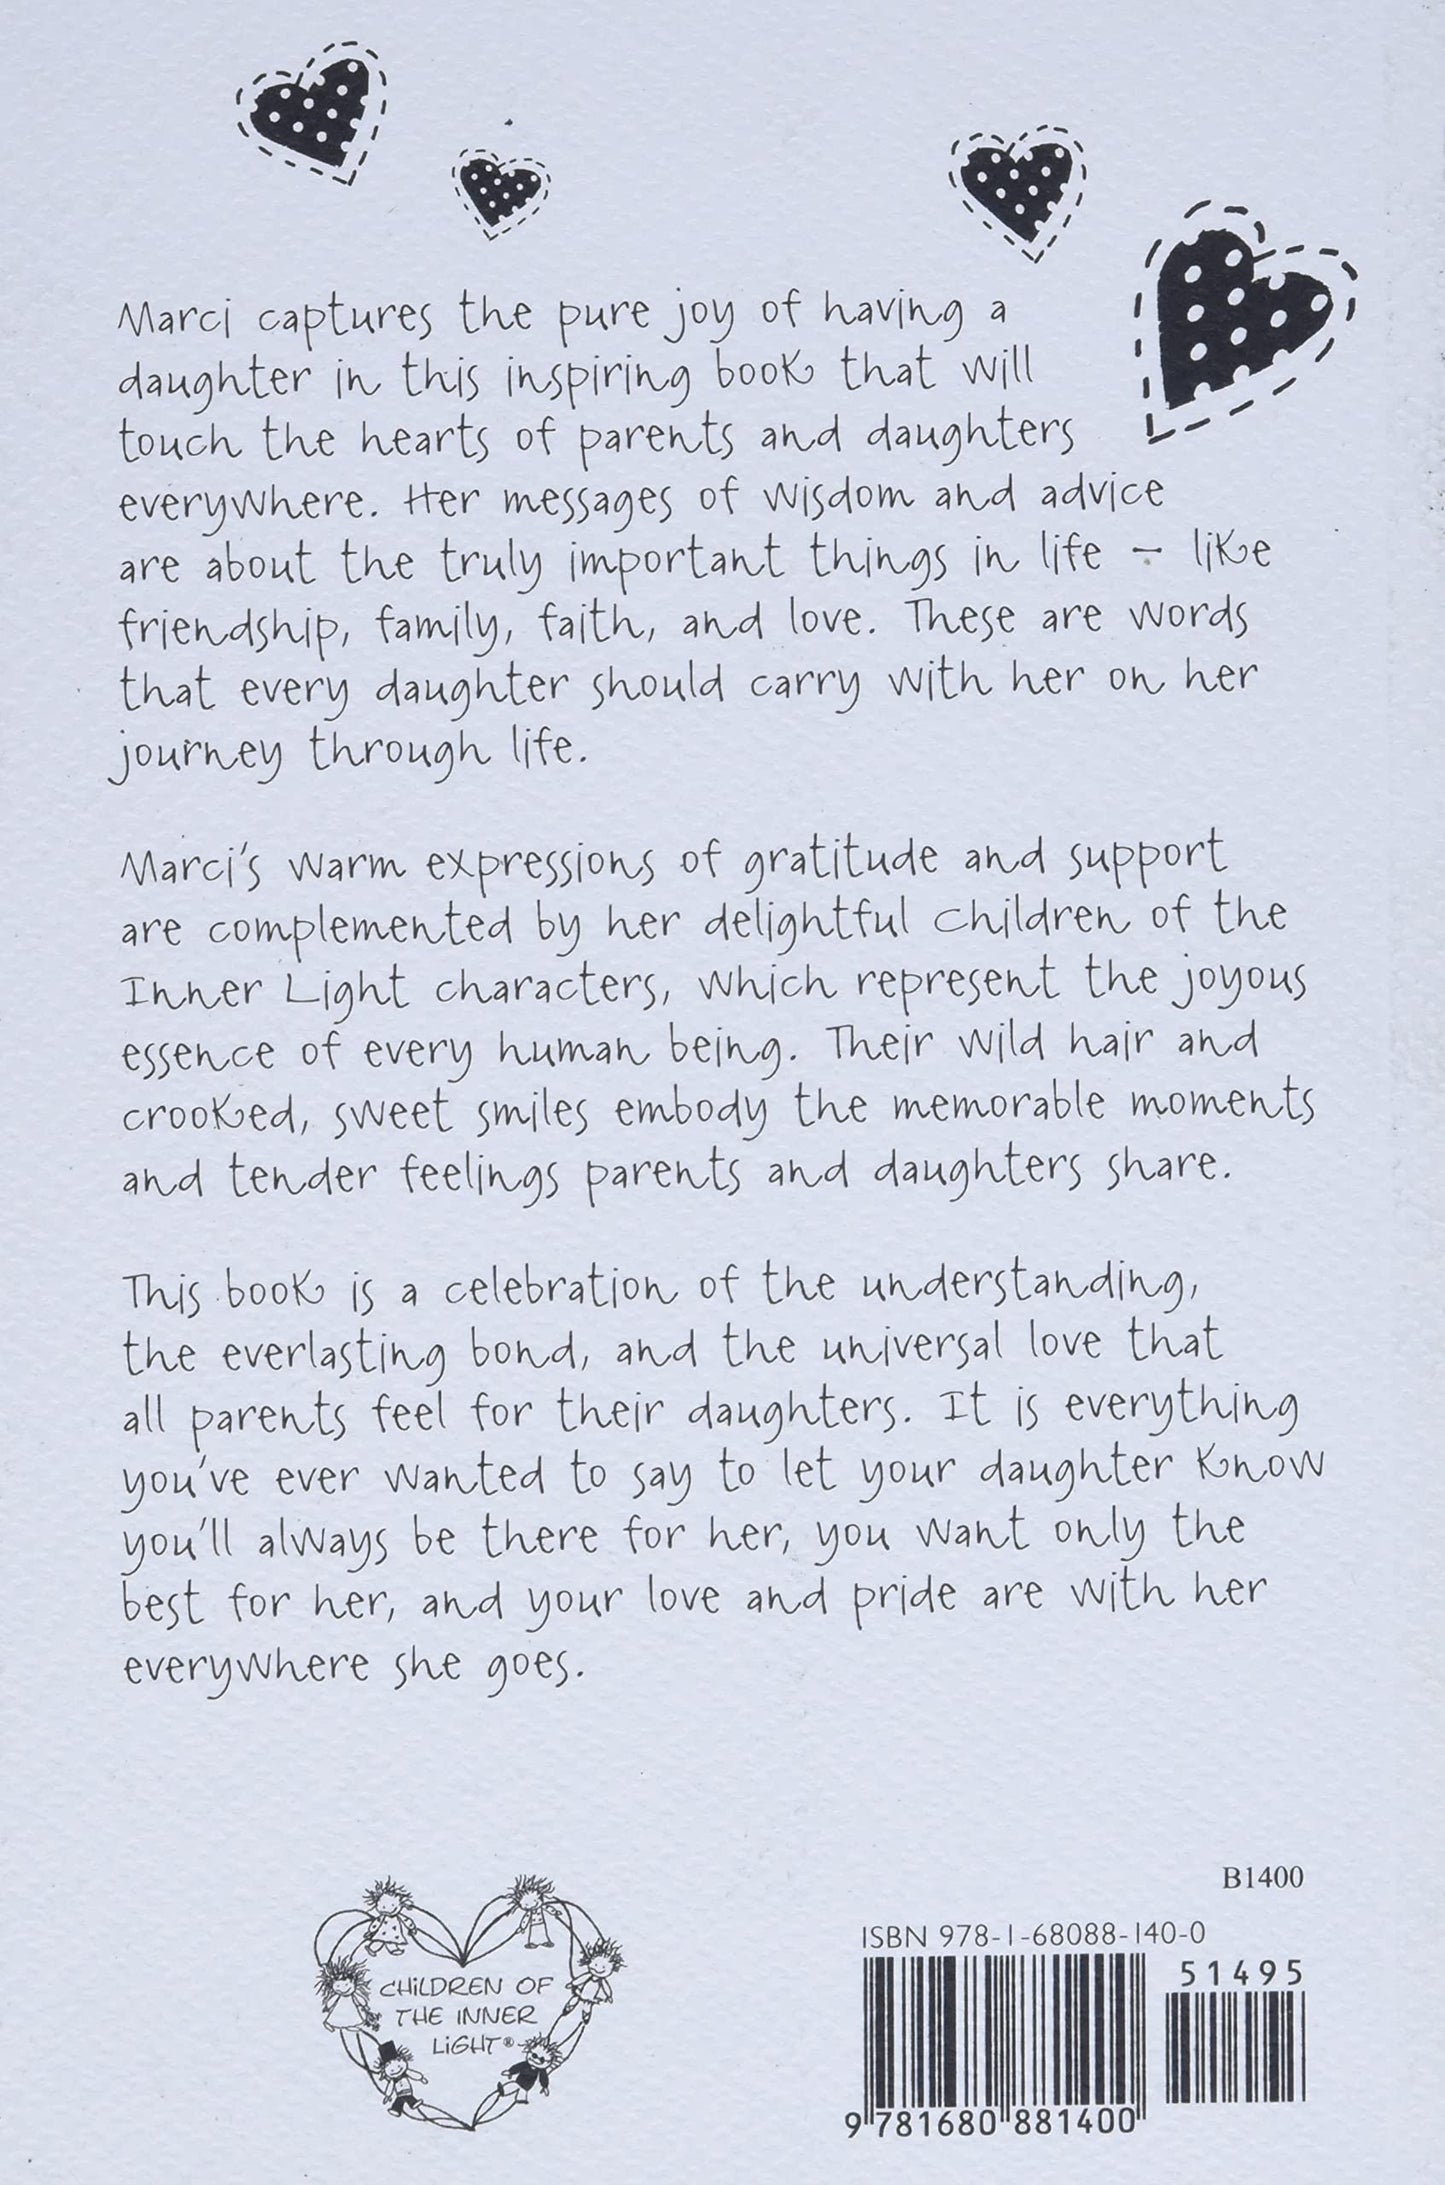 Marci captures the pure joy of having a
daughter in this inspiring book that will
touch the hearts of parents and daughters
everywhere. Her messages of wisdom and advice
are about the truly important things in life – like
friendship, family, faith, and love. These are words
that every daughter should carry with her on her
journey through life.
Marci's warm expressions of gratitude and support
are complemented by her delightful Children of the
Inner Light characters, which represent the joyous
essence of every human being. Their wild hair and
crooked, sweet smiles embody the memorable moments
and tender feelings parents and daughters share.
This book is a celebration of the understanding,
the everlasting bond, and the universal love that
all parents feel for their daughters. It is everything
you've ever wanted to say to let your daughter know
you'll always be there for her, you want only the
best for her, and your love and pride are with her
everywhere she goes.
CHiLDREN OF
THE INNER
LiGHT®
B1400
ISBN 978-1-68088-140-0
51495
9 781680 881400